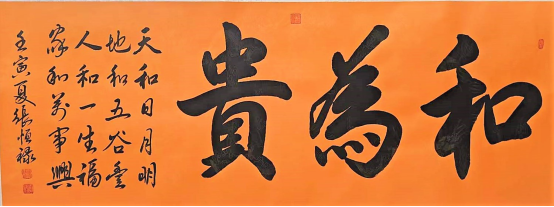 和為貴
天和日月明
地和五谷豐
人和一生福
家和萬事興
壬寅夏張恒祿